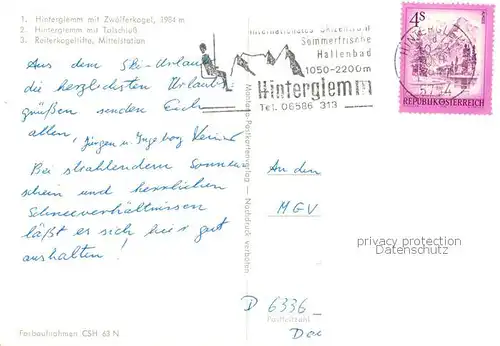 1. Hinterglemm mit Zwölferkogel, 1984 m
2. Hinterglemm mit Talschluß
3. Reiterkogellifte, Mittelstation
Aus dem Ski-Urlaub
die herzlichsten Urlaubs
grüßen senden Euch
allen, Jürgen u. Ingeborg
Bei strahlendem Sonnen
schein und herrlichen
Schneeverhältnissen
läßt es sich hier gut
aushalten!
Farbaufnahmen CSH 63 N
Montania-Postkartenverlag — Nachdruck verboten
Internationales Skizentrum
Sommerfrische
Hallenbad
1050-2200m
Hinterglemm
Tel. 06586 313
HINTERGLEMM
5754
4S
REPUBLIK ÖSTERREICH
An den
MGV
privacy protection
Datenschutz
D 6336
Postleitzahl